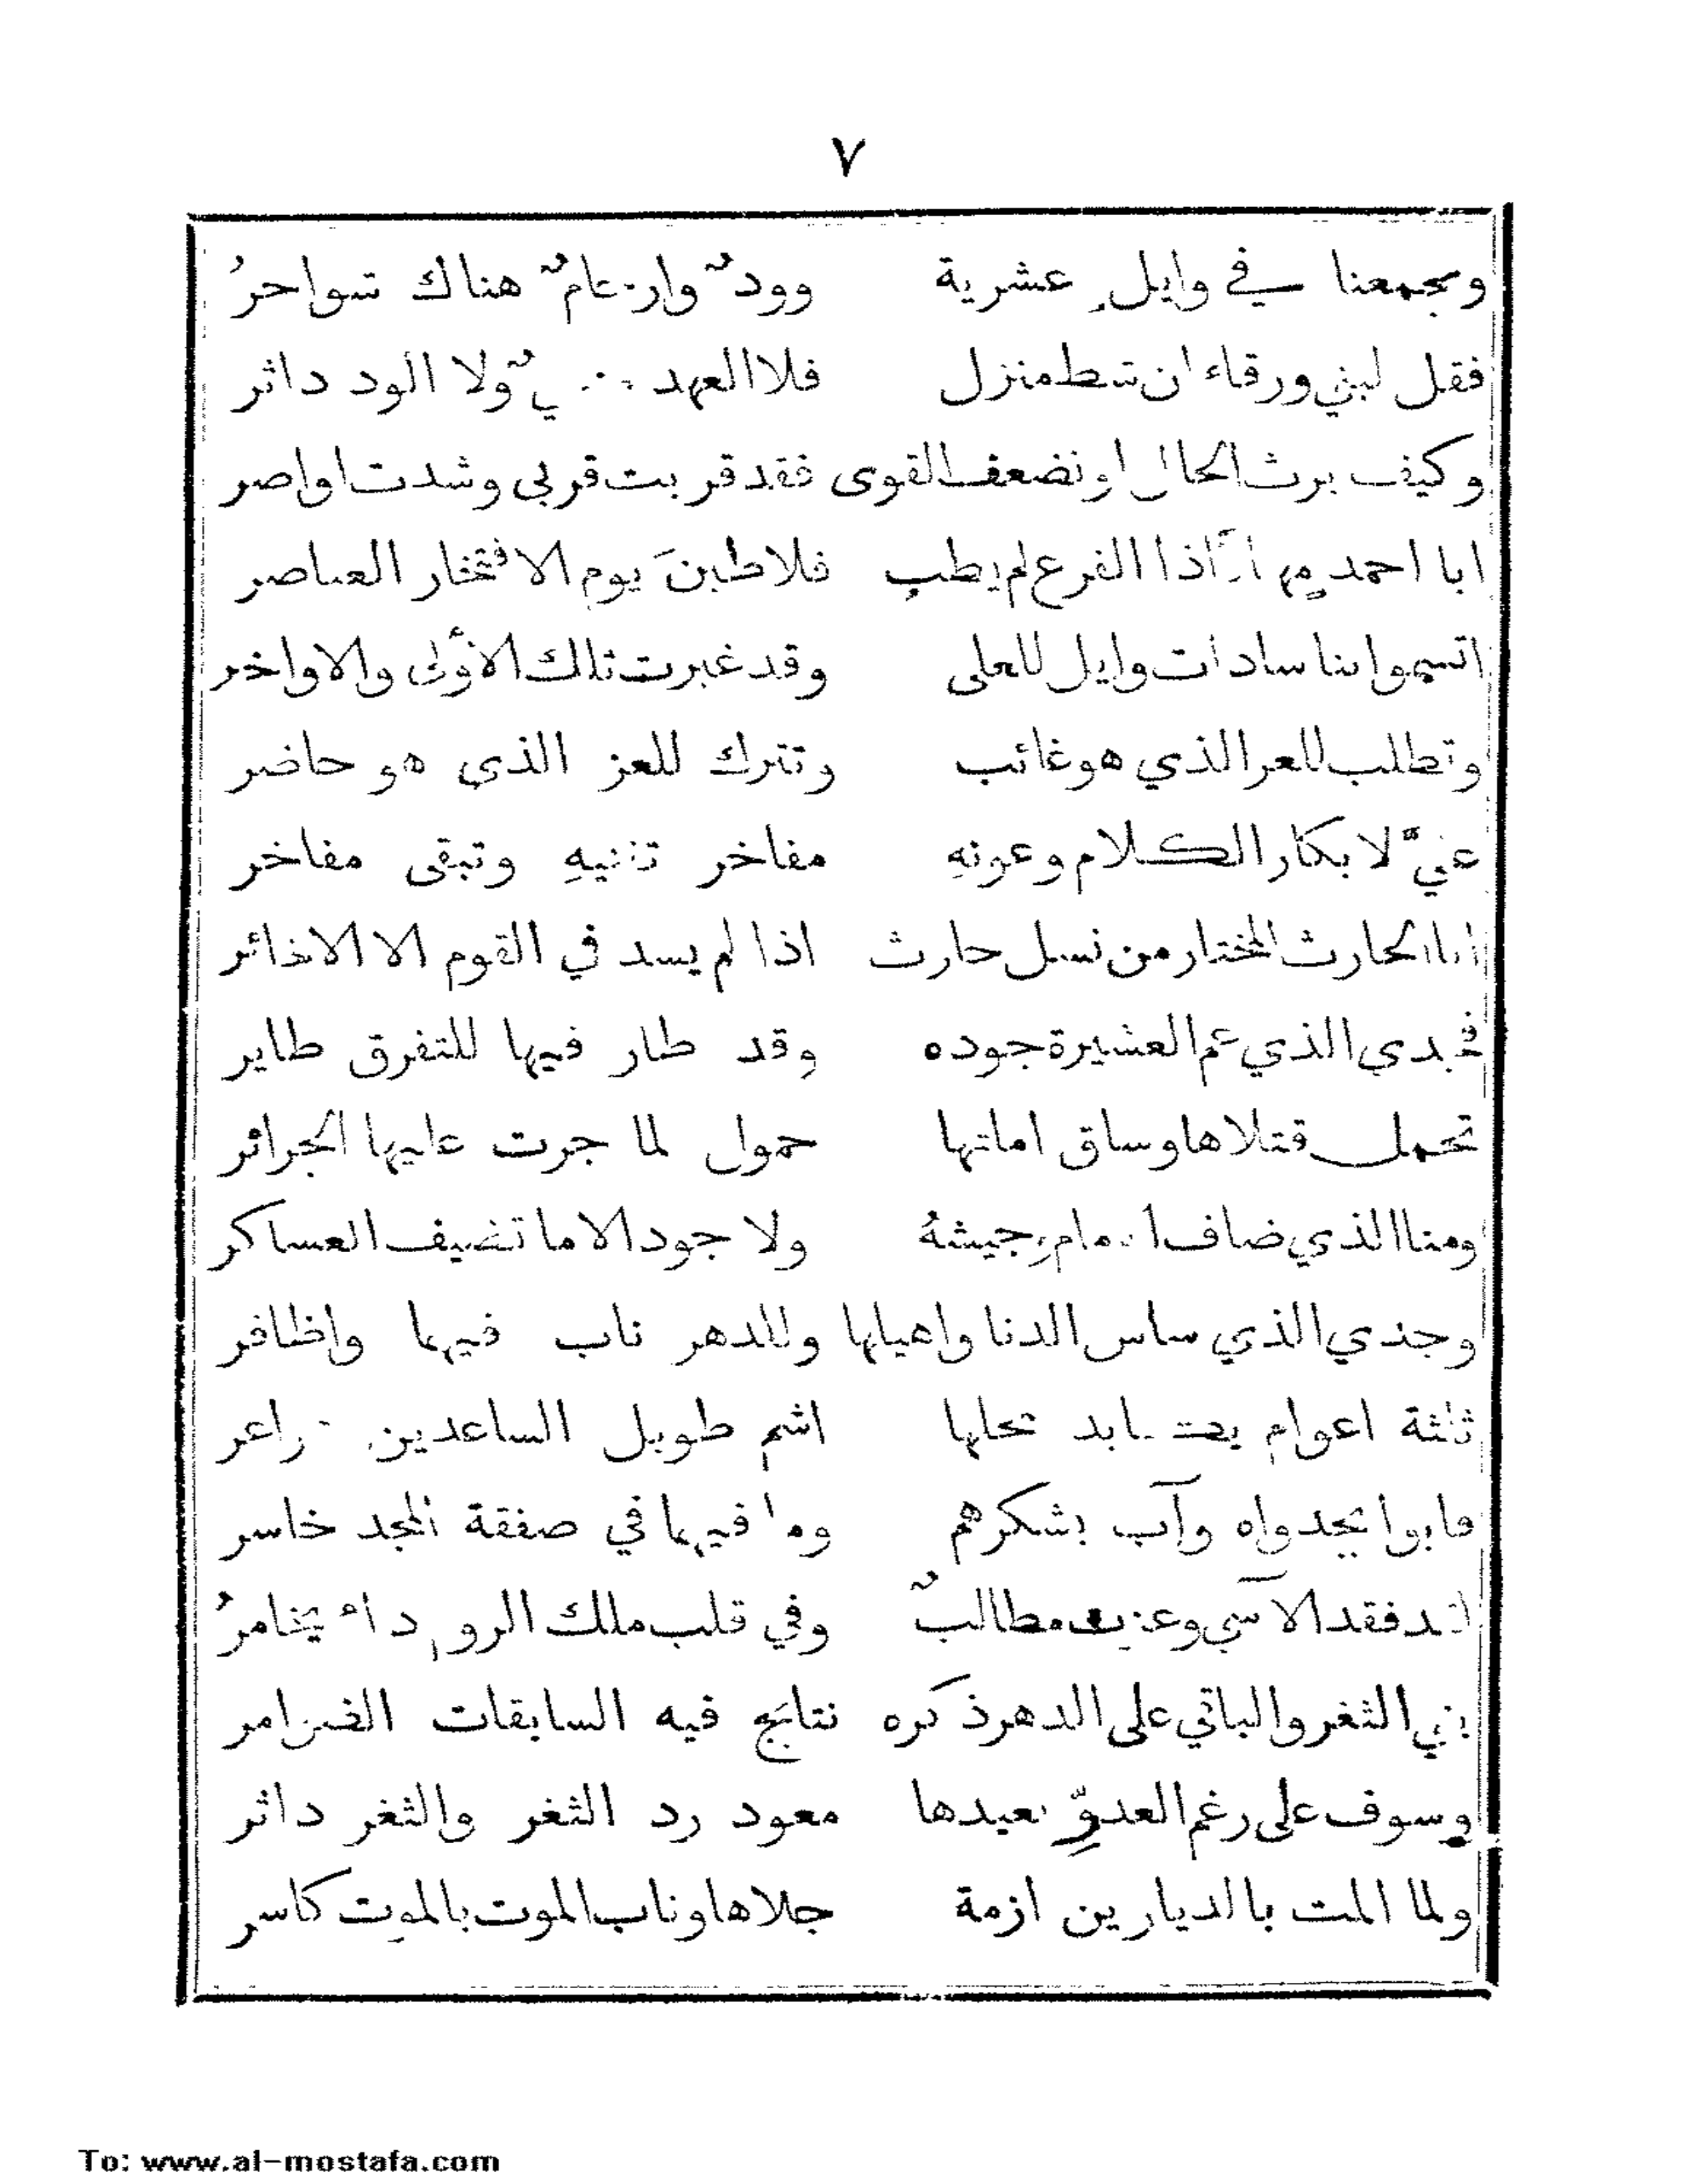 ٧
ويجمعنا في وايلٍ عشرية وودٌ وارحامٌ هناك شواجرُ
فقل لبني ورقاء ان شط منزل فلا العهد ولا الود داثر
وكيف يرث الحال او تضعف القوى فقد قربت قربى وشدت اواصر
ابا احمد اذا الفرع لم يطب فلا طبنَ يوم الافتخار العناصر
اتسموا بنا سادات وايل للعلى وقد غبرت تلك الأولى والاواخر
وتطلب للعز الذي هو غائب وتترك للعز الذي هو حاضر
عنيٌّ لابكار الكلام وعونهِ مفاخر تفنيهِ وتبقى مفاخر
انا الحارث المختار من نسل حارث اذا لم يسد في القوم الا الاخائر
فجدي الذي عم العشيرة جوده وقد طار فيها للتفرق طاير
تحمل قتلاها وساق اماتها حمول لما جرت عليها الجرائر
ومنا الذي ضاف جيشهُ ولا جود الا ما تضيف العساكر
وجدي الذي ساس الدنا واهيلها وللدهر ناب فيهما واظافر
ثلثة اعوام محلها اشم طويل الساعدين
فابوا بجدواه وآب بشكرهم وما فيهما في صفقة المجد خاسر
فقد الآسي مطالبٌ وفي قلب ملك الروم داء يخامرُ
بني الثغر والباقي على الدهر ذكره نتايج فيه السابقات الضوامر
وسوف على رغم العدوِّ يعيدها معود رد الثغر والثغر داثر
ولما المت بالديارين ازمة جلاها وناب الموت بالموت كاسر
To: www.al-mostafa.com